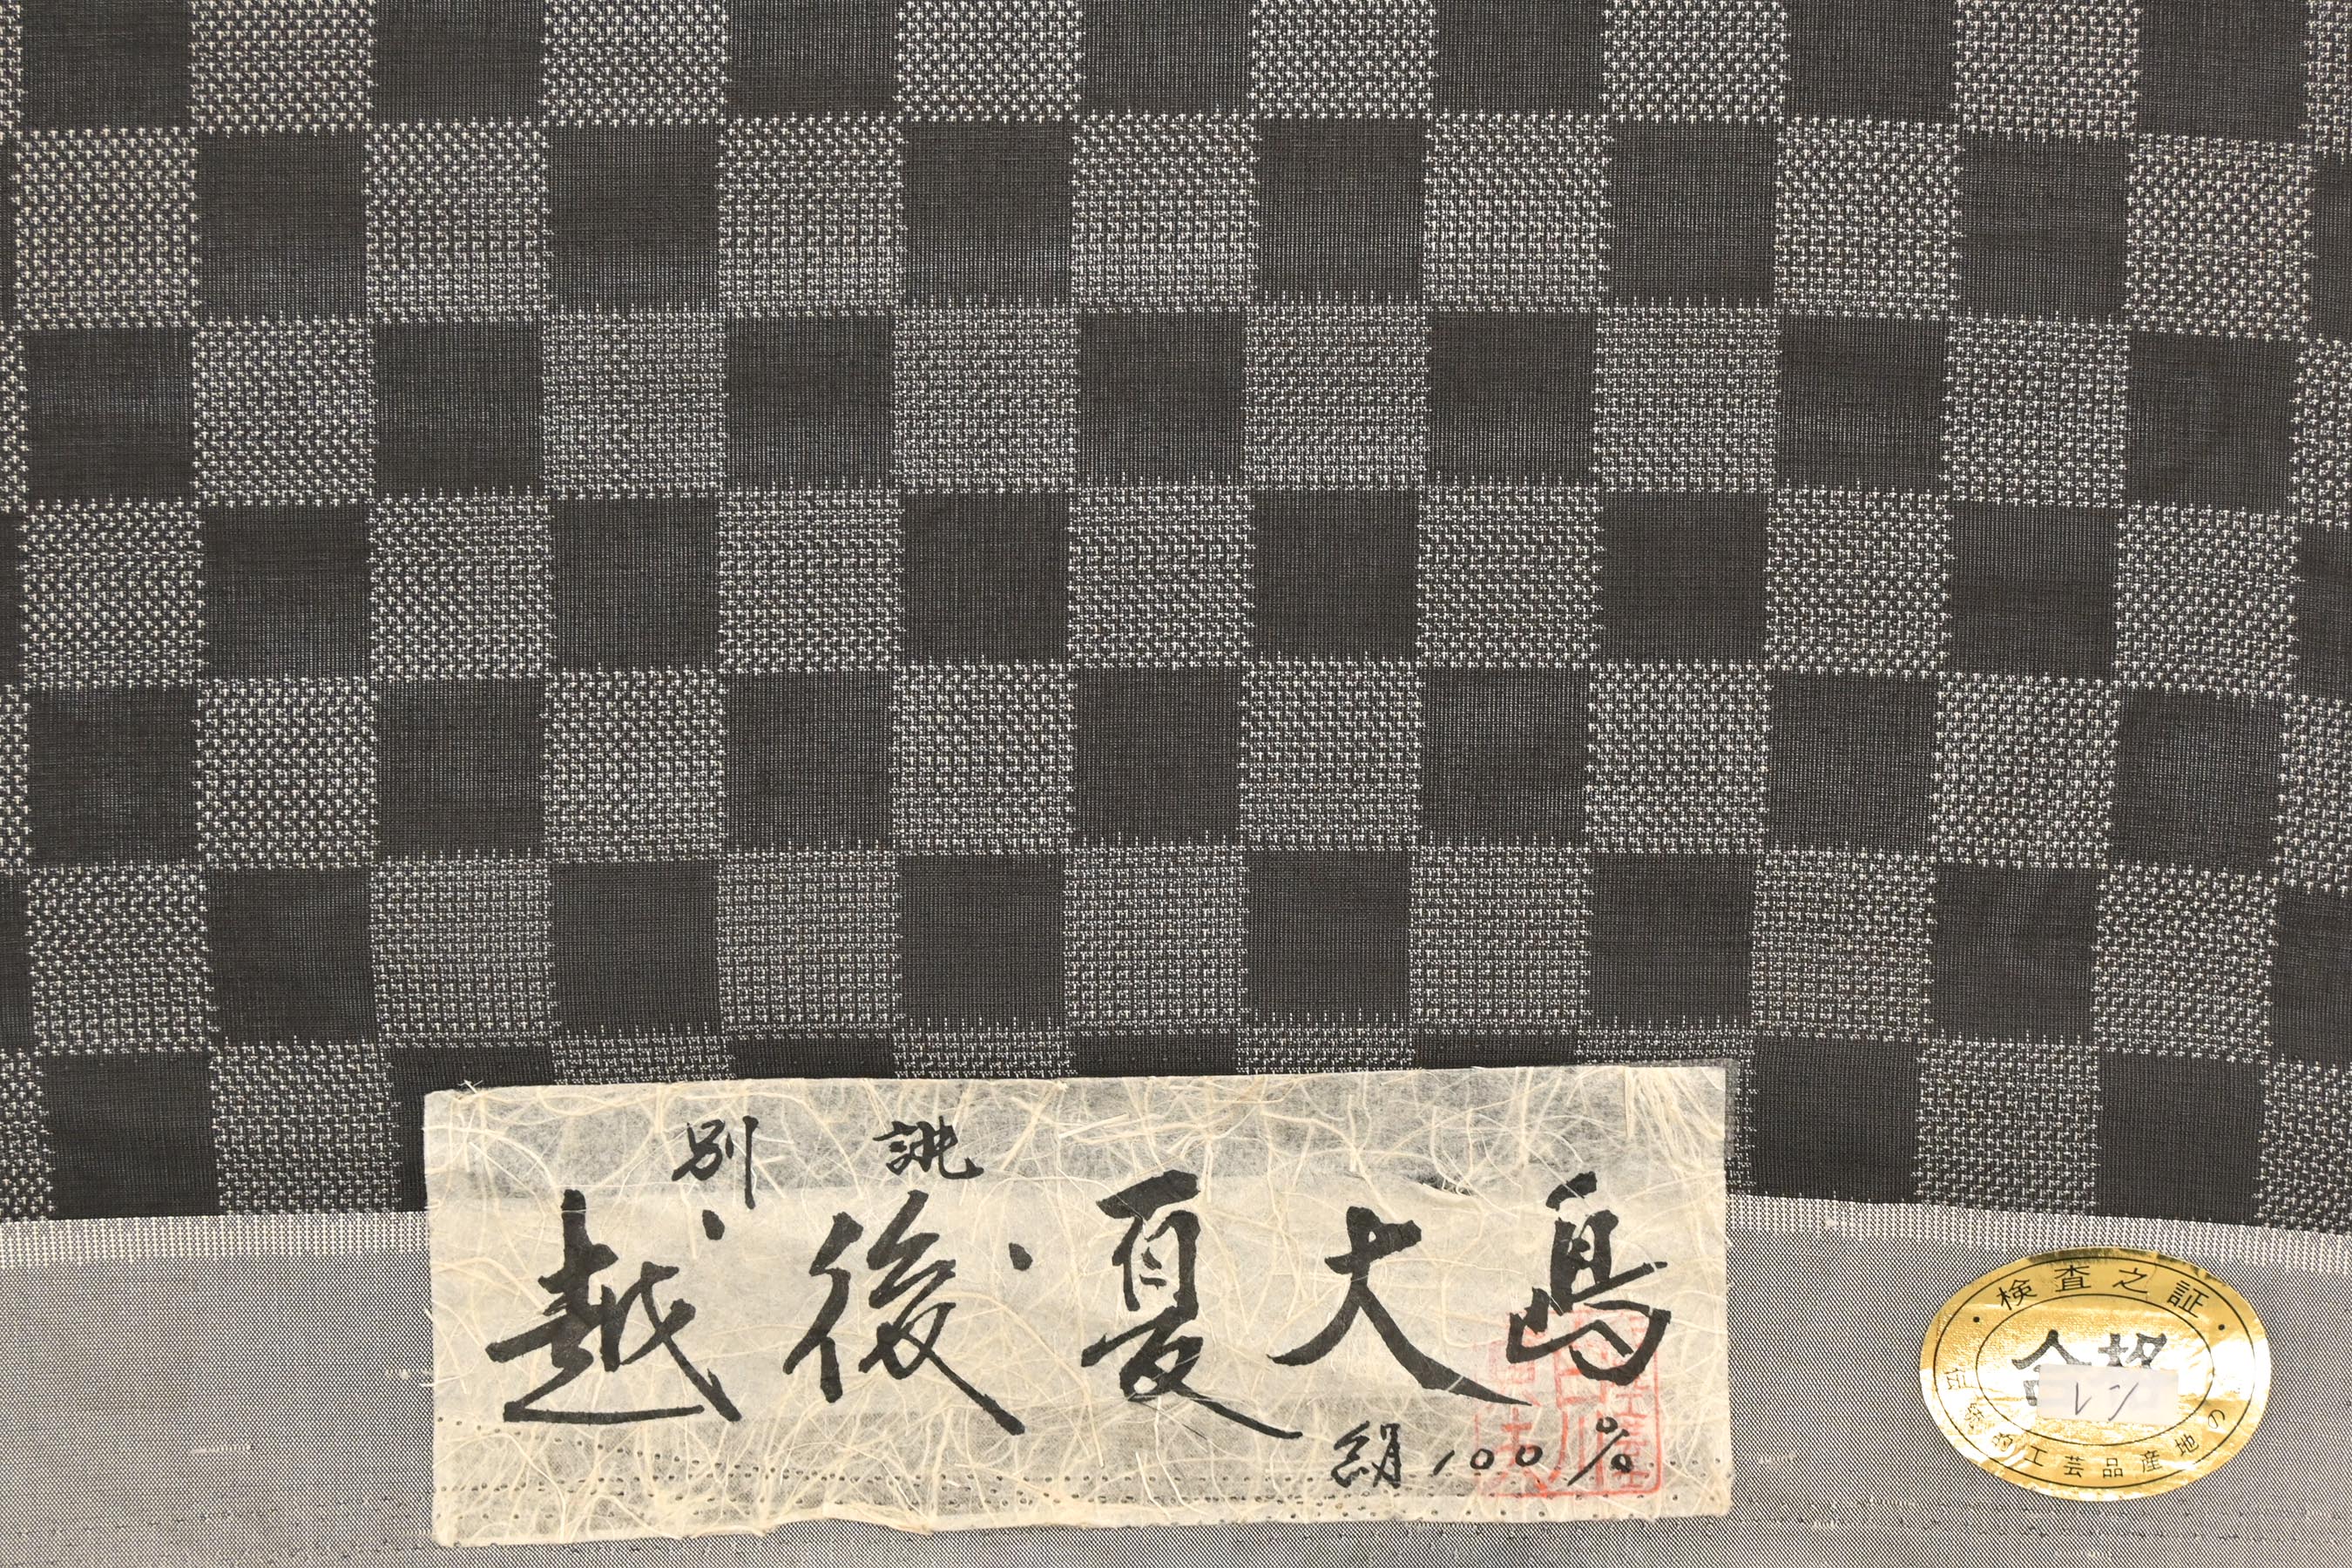 別誂
越後夏大島
絹100%
検査之証
合格
レン
伝統的工芸品産地の